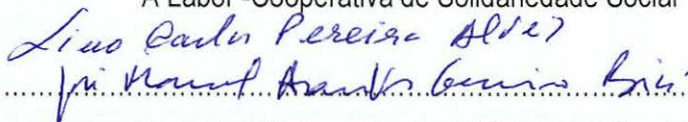 A Labor -Cooperativa de Solidariedade Social
Lino Carlos Pereira Alves
José Manuel